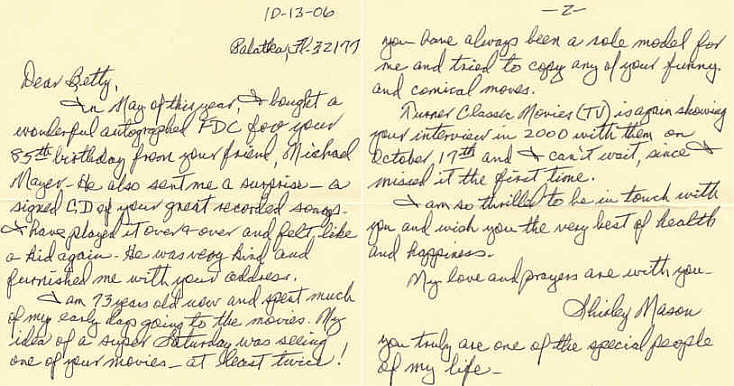 10-13-06
Palatka, Fl-32177
Dear Betty,
In May of this year, I bought a
wonderful autographed FDC for your
85th birthday from your friend, Michael
Mayer- He also sent me a surprise - a
signed CD of your great recorded songs-
I have played it over & over and felt like
a kid again- He was very kind and
furnished me with your address.
I am 73 years old now and spent much
of my early days going to the movies. My
idea of a super Saturday was seeing
one of your movies - at least twice!
-2-
you have always been a role model for
me and tried to copy any of your funny
and comical moves.
Turner Classic Movies (TV) is again showing
your interview in 2000 with them on
October, 17th and I can't wait, since I
missed it the first time.
I am so thrilled to be in touch with
you and wish you the very best of health
and happiness.
My love and prayers are with you-
Shirley Mason
you truly are one of the special people
of my life-